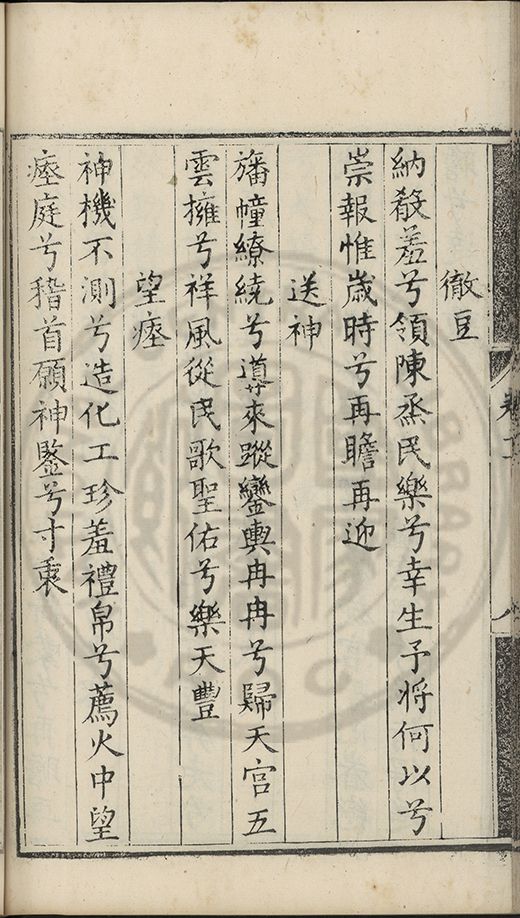 徹豆
納殽羞兮領陳烝民樂兮幸生予將何以兮
崇報惟歲時兮再瞻再迎
送神
旛幢繚繞兮導來蹤鸞輿冉冉兮歸天宮五
雲擁兮祥風從民歌聖佑兮樂天豐
望瘞
神機不測兮造化工珍羞禮帛兮薦火中望
瘞庭兮稽首願神鑒兮寸衷